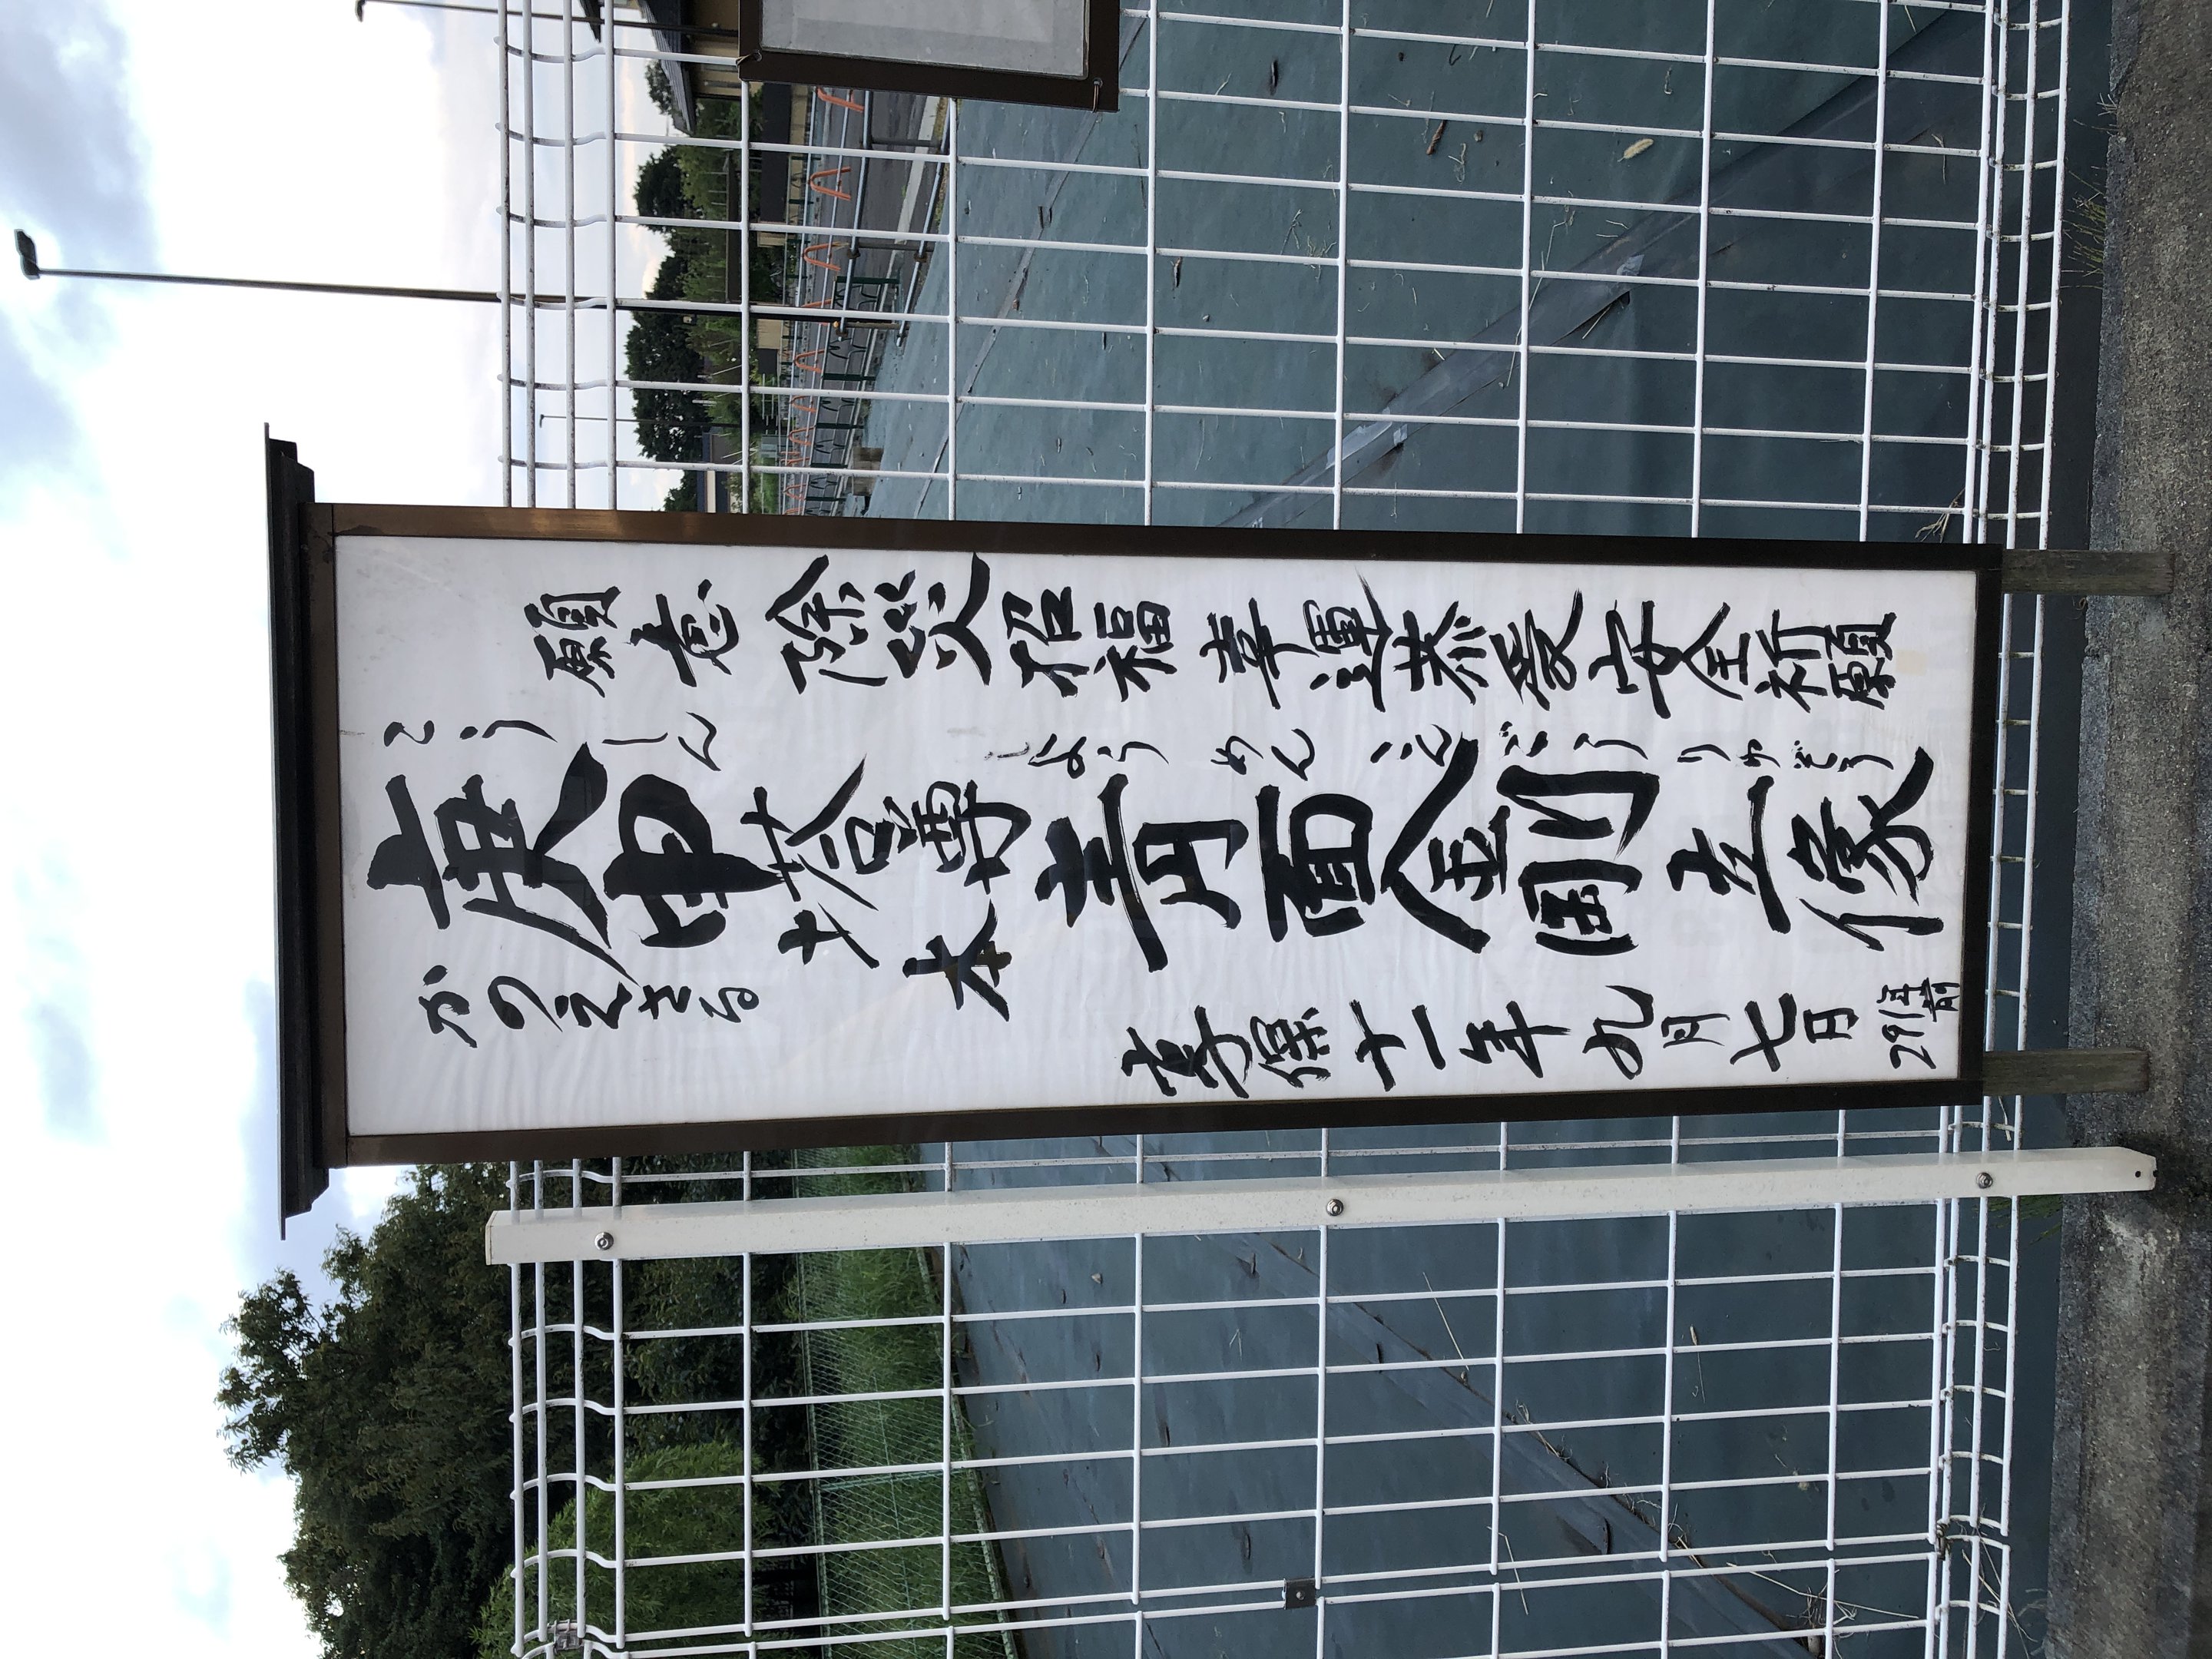 願意 除災招福 幸運恭愛 安全祈願
こうしん しょうめんこんごうりゅぞう
庚申塔 本尊 青面金剛立像
かのえさる
享保十一年九月七日 291年前